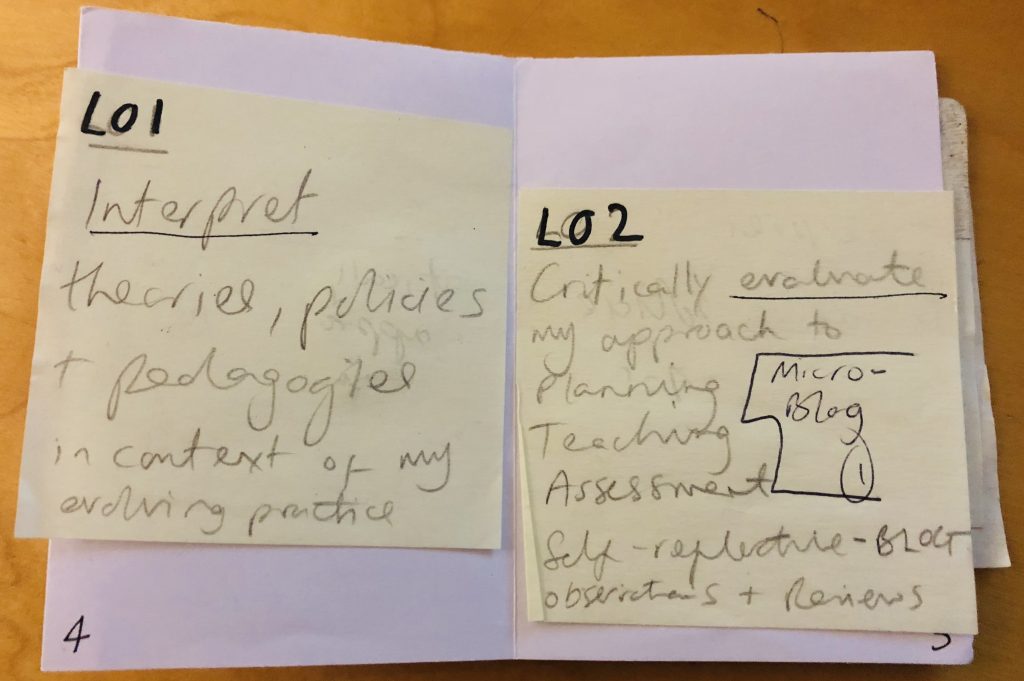 LO1
Interpret
theories, policies
+ pedagogies
in context of my
evolving practice
4
LO2
Critically evaluate
my approach to
Planning
Teaching
Assessment
Micro-
Blog
1
Self-reflective-BLOG
observations + Reviews
5